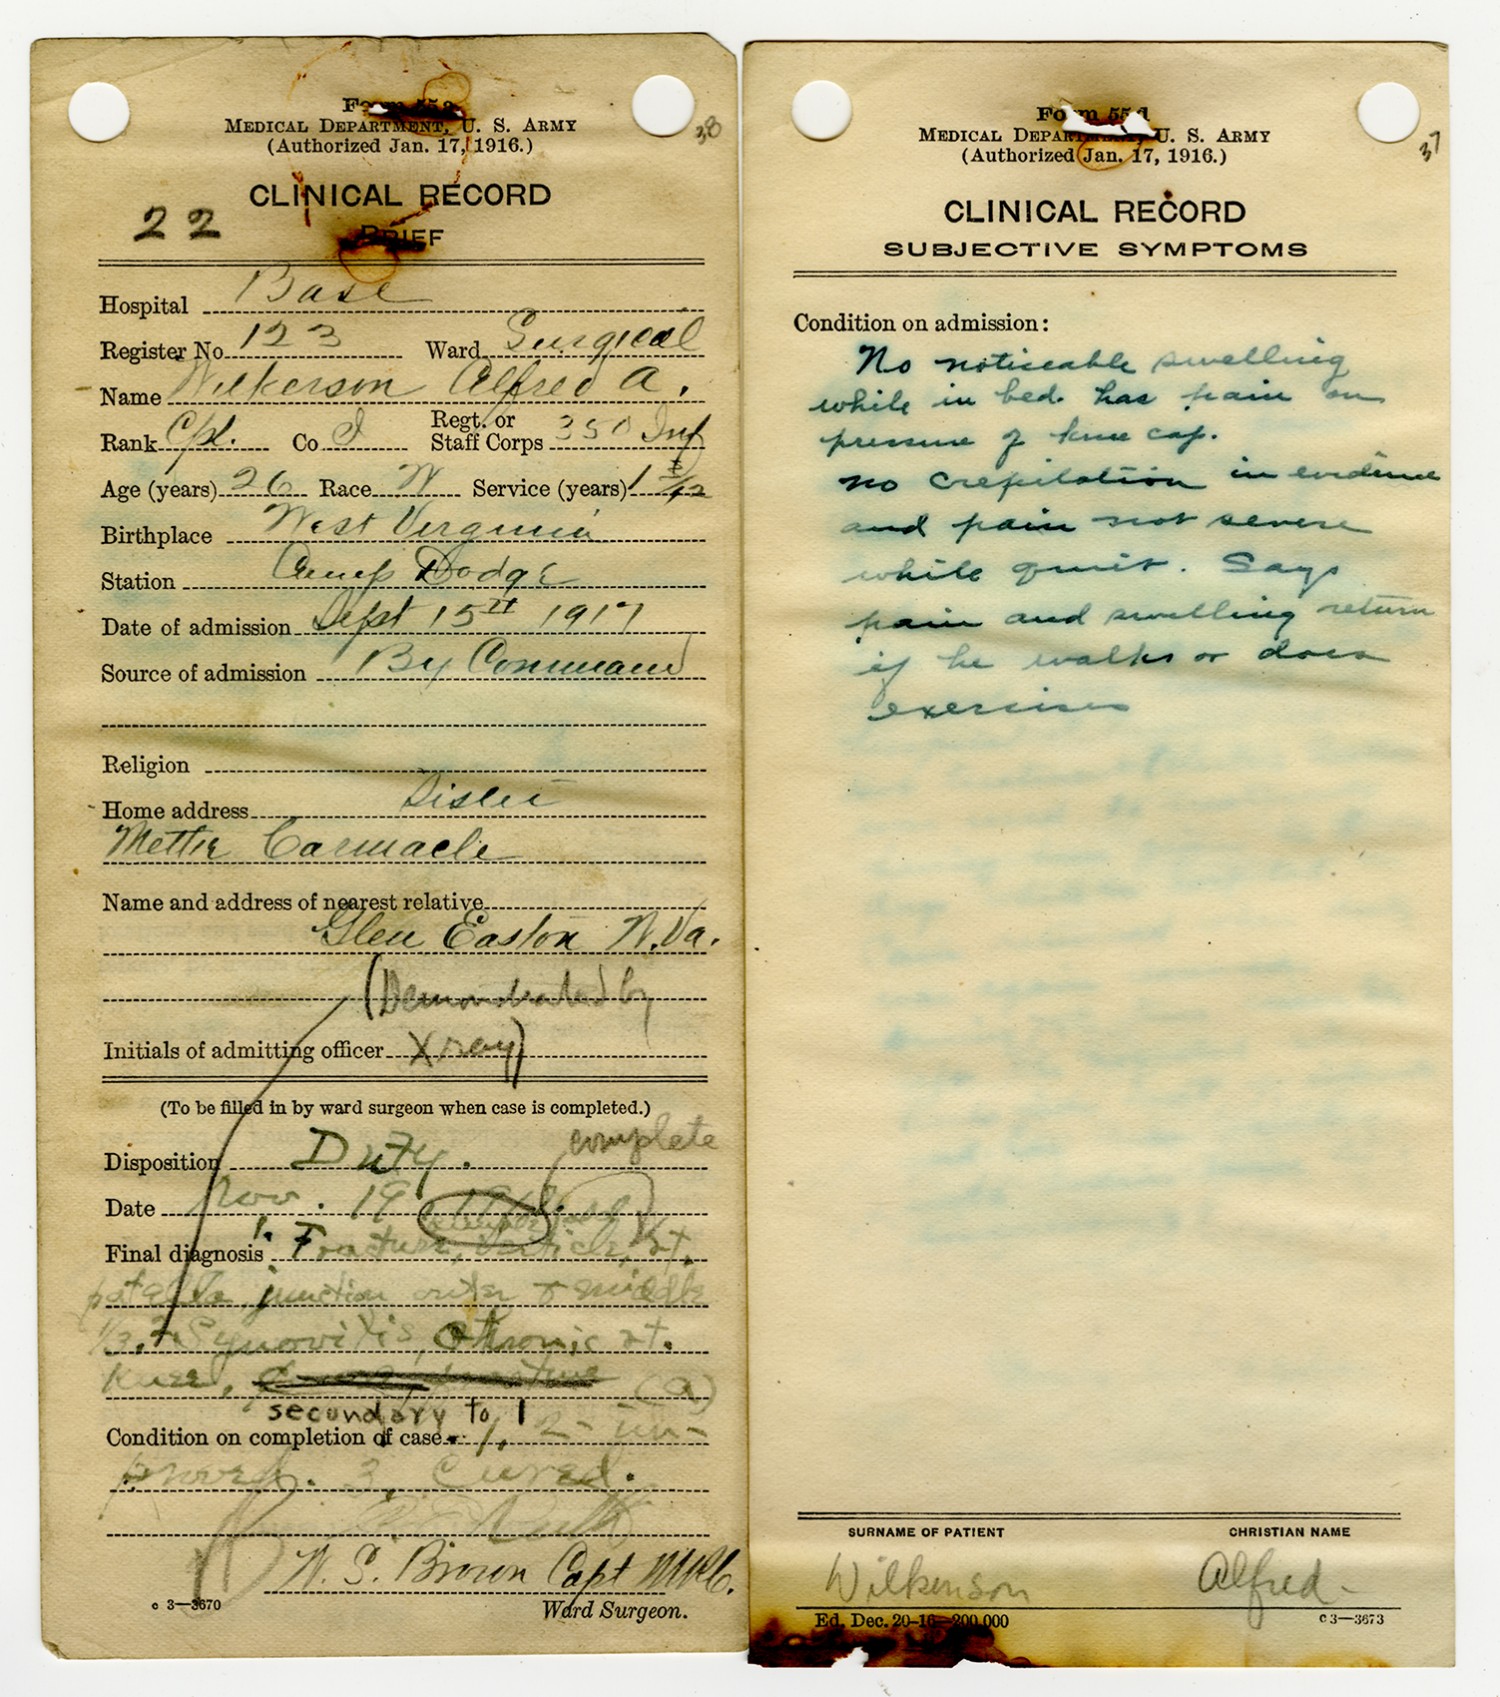 Form 55a
MEDICAL DEPARTMENT, U. S. ARMY
(Authorized Jan. 17, 1916.)
38
CLINICAL RECORD
22
BRIEF
Hospital Base
Register No. 123 Ward Surgical
Name Wilkerson Alfred A.
Rank Cpl. Co I Regt. or Staff Corps 350 Inf
Age (years) 26 Race W Service (years) 1
Birthplace West Virginia
Station Camp Dodge
Date of admission Sept 15th 1917
Source of admission By Command
Religion
Home address Sister
Mettie
Name and address of nearest relative
Glen Easton W. Va.
(Demonstrated by
Initials of admitting officer X ray)
(To be filled in by ward surgeon when case is completed.)
complete
Disposition Duty.
Date Nov. 19
Final diagnosis 1. Fracture, rt.
patella, junction outer & middle
1/3. 2. Synovitis, chronic rt.
knee, (a)
secondary to 1
Condition on completion of case 1, 2 - im-
proved. 3, cured.
W. S. Brown Capt MRC.
c 3—3670
Ward Surgeon.
Form 55d
MEDICAL DEPARTMENT, U. S. ARMY
(Authorized Jan. 17, 1916.)
37
CLINICAL RECORD
SUBJECTIVE SYMPTOMS
Condition on admission:
No noticeable swelling
while in bed. has pain on
pressure of knee cap.
no crepitation in evidence
and pain not severe
while quiet. Says
pain and swelling return
if he walks or does
exercises
SURNAME OF PATIENT CHRISTIAN NAME
Wilkenson Alfred-
Ed. Dec. 20-16—200,000 c 3—3673